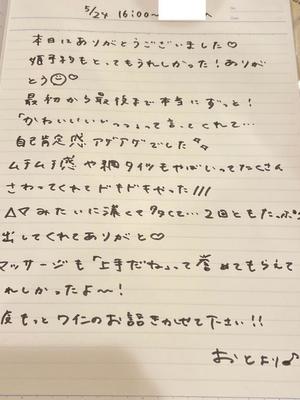 5/24 16:00〜 へ
本日はありがとうございました♡
姫予約もとってもうれしかった！ありが
とう♡
最初から最後まで本当にずっと！
「かわいいいいっっ」って言ってくれて…
自己肯定感アゲアゲでした
ムチムチ感や網タイツもやばいってたくさん
さわってくれてドキドキやった///
△▽みたいに濃くて多くて…2回ともたっぷり
出してくれてありがと♡
マッサージも「上手だね」って誉めてもらえて
れしかったよ〜！
度もっとワインのお話きかせて下さい!!
おとより♪